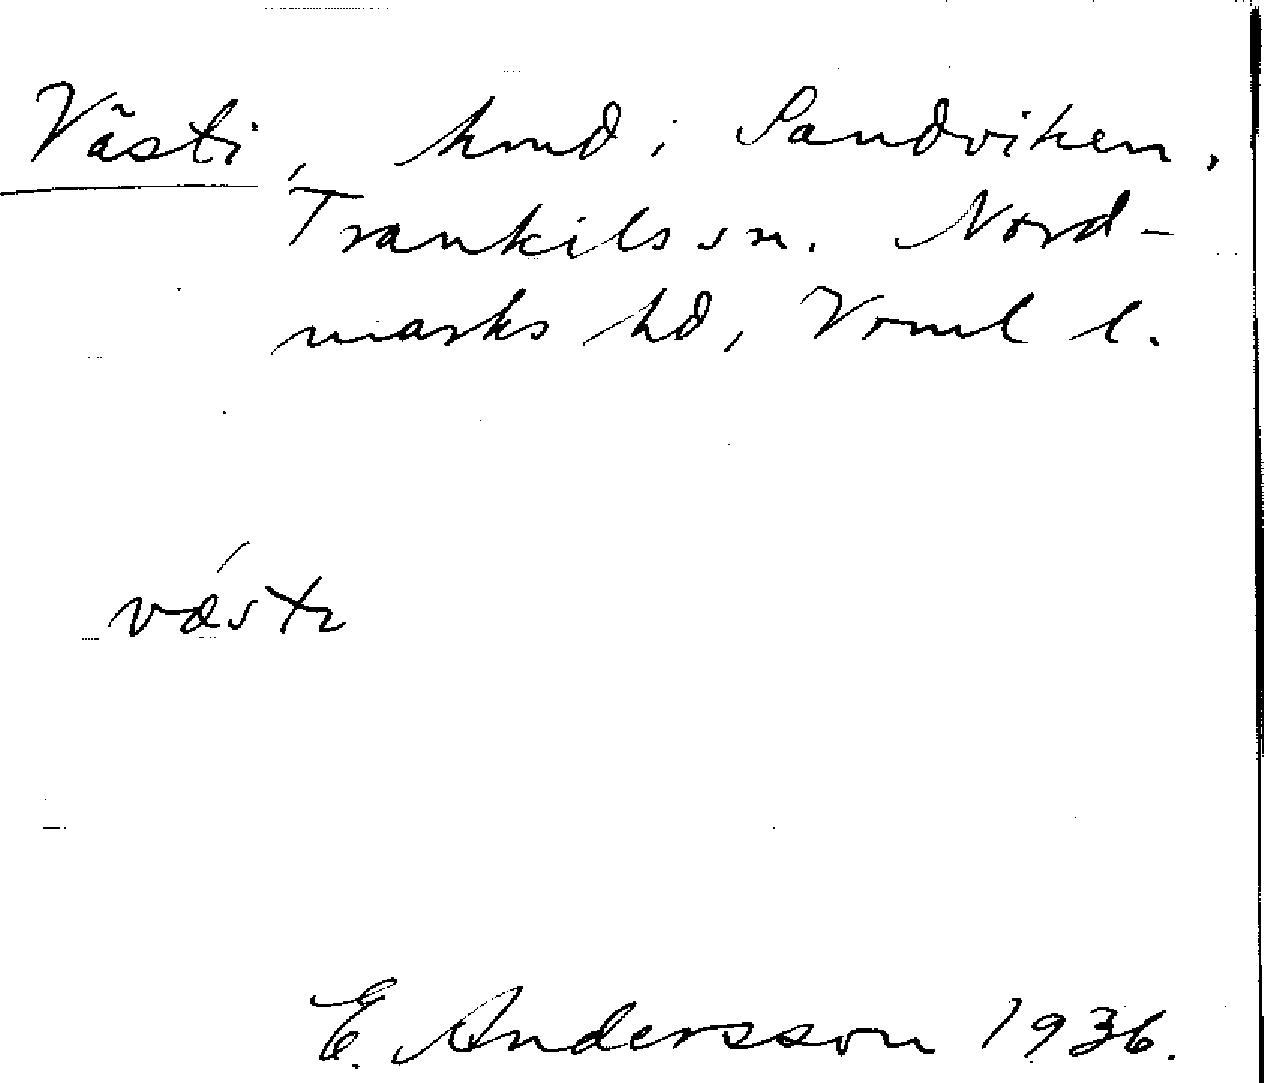 Västi, hmd i Sandviken,
Trankils sn. Nord-
marks hd, Vrml l.
væstɩ
E. Andersson 1936.